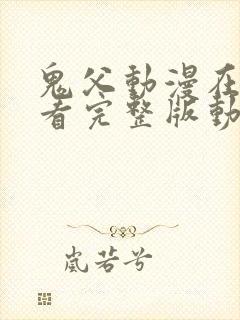 鬼父動漫在
看完整版動
嵐若兮